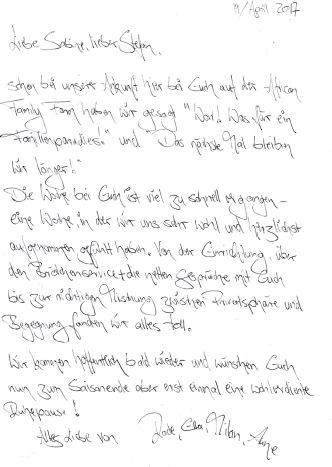 19/April 2017
Liebe Sabine, lieber Stefan,
schon bei unserer Ankunft hier bei Euch auf der African
Family Farm haben wir gesagt "Wow! Was für ein
Familienparadies!" und "Das nächste Mal bleiben
wir länger!"
Die Woche bei Euch ist viel zu schnell vergangen –
eine Woche, in der wir uns sehr wohl und herzlichst
aufgenommen gefühlt haben. Von der Einrichtung, über
den Brötchenservice + die netten Gespräche mit Euch
bis zur richtigen Mischung zwischen Privatsphäre und
Begegnung fanden wir alles toll.
Wir kommen hoffentlich bald wieder und wünschen Euch
nun zum Saisonende aber erst einmal eine wohlverdiente
Ruhepause!
Alles Liebe von Ella, Milan,